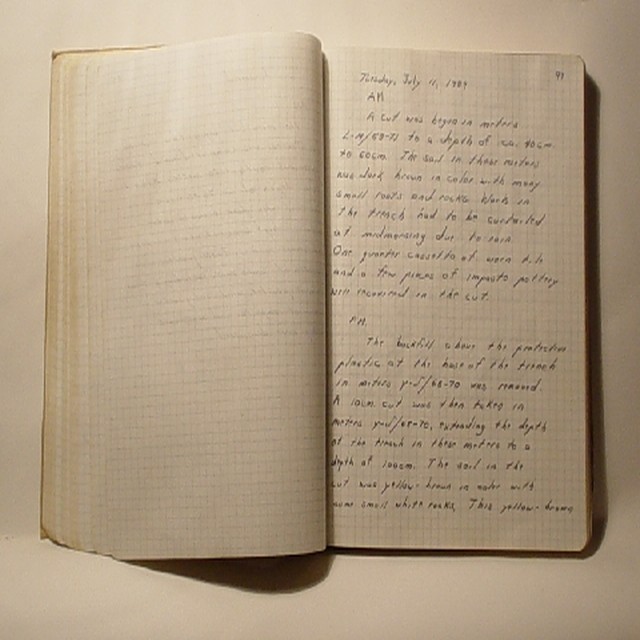 97
Tuesday, July 11, 1989
AM
A cut was begun in meters
L-N/68-71 to a depth of ca. 40cm
to 60cm. The soil in these meters
was dark brown in color with many
small roots and rocks. Work in
the trench had to be curtailed
at midmorning due to rain.
One quarter cassetta of worn tile
and a few pieces of impasto pottery
were recovered in the cut.
P.M.
The backfill above the protective
plastic at the base of the trench
in meters 68-70 was removed.
A 10cm cut was then taken in
meters 68-70, extending the depth
of the trench in these meters to a
depth of 100cm. The soil in the
cut was yellow-brown in color with
some small white rocks. This yellow-brown